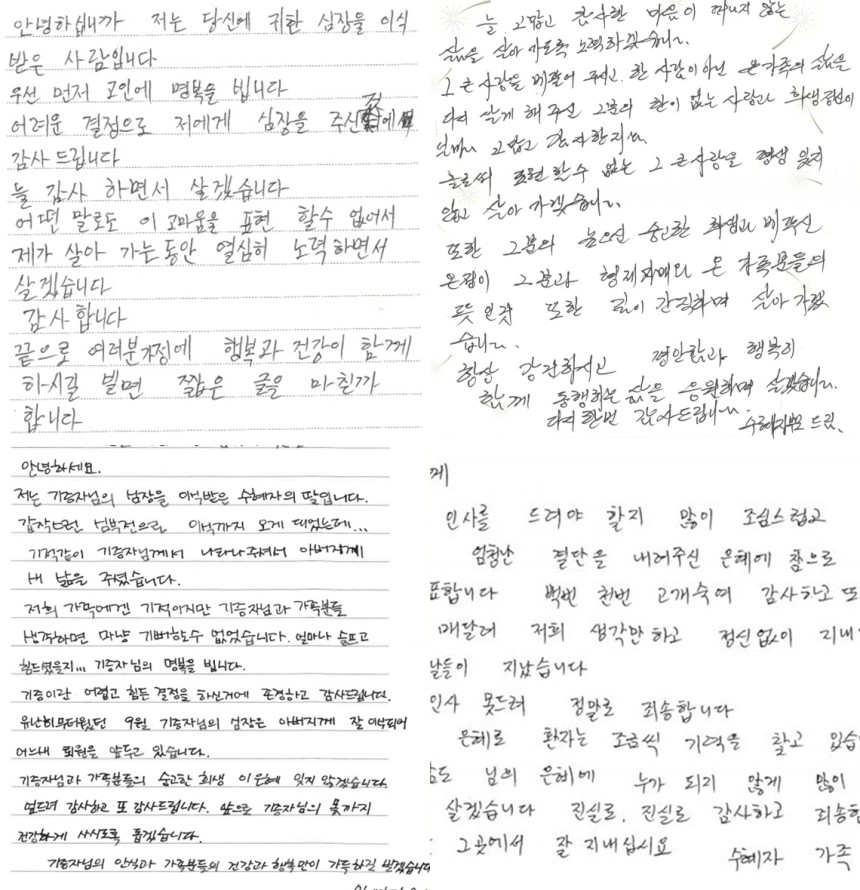 안녕하십니까 저는 당신에 귀환 심장을 이식
받은 사람입니다
우선 먼저 고인에 명복을 빕니다
어려운 결정으로 저에게 심장을 주신
감사드립니다
늘 감사 하면서 살겠습니다
어떤 말로도 이 고마움을 표현 할수 없어서
제가 살아 가는동안 열심히 노력하면서
살겠습니다
감사합니다
끝으로 여러분가정에 행복과 건강이 함께
하시길 빌면 짧은 글을 마친가
합니다
늘 고맙고 감사한 마음이 떠나지 않는
삶을 살아 가도록 노력하겠습니다.
그 큰 사랑을 베풀어 주시고, 한 사람이 아닌 온가족의 삶을
다시 살게 해 주신 그분의 한이 없는 사랑과 희생정신이
얼마나 고맙고 감사한지요.
글로써 표현 할 수 없는 그 큰 사랑을 평생 잊지
않고 살아 가겠습니다.
또한 그분의 높으신 숭고한 희생과 베푸신
온정이 그분과 형제자매와 온 가족분들의
뜻인것 또한 깊이 간직하며 살아 가겠
습니다.
항상 강건하시고 평안함과 행복이
함께 동행하는 삶을 응원하며 살겠습니다.
다시한번 감사드립니다. 수혜자부모 드림.
안녕하세요.
저는 기증자님의 심장을 이식받은 수혜자의 딸입니다.
갑작스런 심부전으로 이식까지 오게 되었는데...
기적같이 기증자님께서 나타나주셔서 아버지께
새 삶을 주셨습니다.
저희 가족에겐 기적이지만 기증자님과 가족분들
생각하면 마냥 기뻐할수 없었습니다. 얼마나 슬프고
힘드셨을지... 기증자님의 명복을 빕니다.
기증이란 어렵고 힘든 결정을 하신거에 존경하고 감사드립니다.
유난히무더웠던 9월 기증자님의 심장은 아버지께 잘 이식되어
어느새 퇴원을 앞두고 있습니다.
기증자님과 가족분들의 숭고한 희생 이은혜 잊지 않겠습니다.
엎드려 감사하고 또 감사드립니다. 앞으로 기증자님의 몫까지
건강하게 사시도록 돕겠습니다.
기증자님의 안식과 가족분들의 건강과 행복만이 가득하길 빌겠습니다
께
인사를 드려야 할지 많이 조심스럽고
엄청난 결단을 내려주신 은혜에 참으로
표합니다 백번 천번 고개숙여 감사하고 또
매달려 저희 생각만 하고 정신없이 지내
날들이 지났습니다
인사 못드려 정말로 죄송합니다
은혜로 환자는 조금씩 기력을 찾고 있습
님의 은혜에 누가 되지 않게 많이
살겠습니다 진실로, 진실로 감사하고 죄송함
그곳에서 잘 지내십시요
수혜자 가족